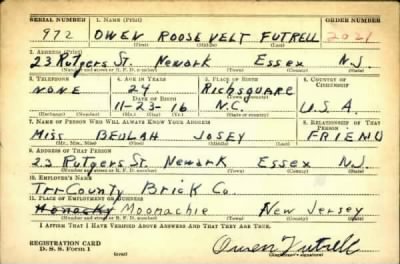 SERIAL NUMBER 1. NAME (Print) ORDER NUMBER
972 OWEN ROOSEVELT FUTRELL 2021
(First) (Middle) (Last)
2. ADDRESS (Print)
23 Rutgers St. Newark Essex N.J.
(Number and street or R. F. D. number) (Town) (County) (State)
3. TELEPHONE 4. AGE IN YEARS 5. PLACE OF BIRTH 6. COUNTRY OF CITIZENSHIP
NONE 24 Richsquare
DATE OF BIRTH (Town or county)
11-23-16 N.C. U.S.A.
(Mo.) (Day) (Yr.) (State or country)
7. NAME OF PERSON WHO WILL ALWAYS KNOW YOUR ADDRESS 8. RELATIONSHIP OF THAT PERSON
Miss BEULAH JOSEY FRIEND
(Mr., Mrs., Miss) (First) (Middle) (Last)
9. ADDRESS OF THAT PERSON
23 Rutgers St. Newark Essex N.J.
(Number and street or R. F. D. number) (Town) (County) (State)
10. EMPLOYER'S NAME
Tri-County Brick Co.
11. PLACE OF EMPLOYMENT OR BUSINESS
Moonachie New Jersey
(Number and street or R. F. D. number) (Town) (County) (State)
I AFFIRM THAT I HAVE VERIFIED ABOVE ANSWERS AND THAT THEY ARE TRUE.
REGISTRATION CARD
D. S. S. Form 1 Owen Futrell
(Registrant's signature)